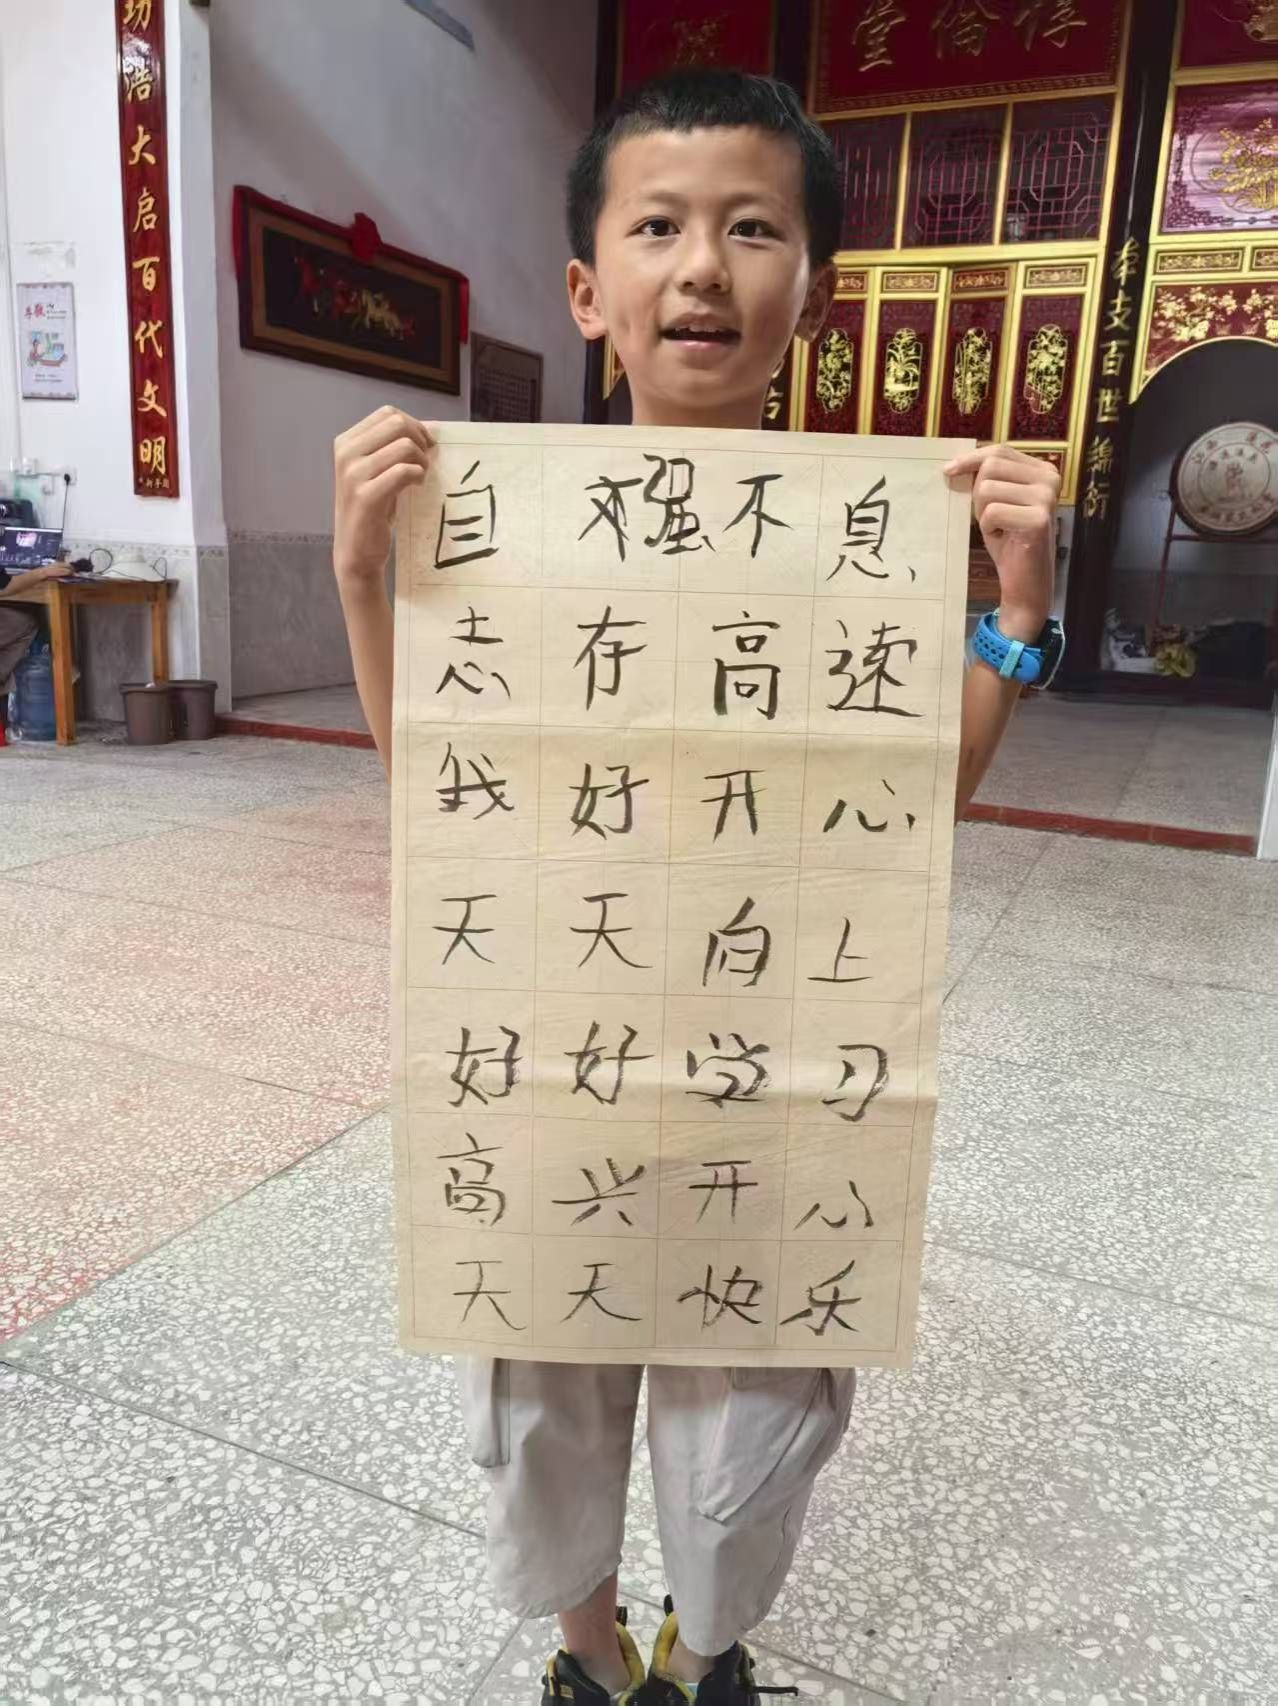 功浩大启百代文明
堂倫惇
本支百世錦衍
自强不息
志存高速
我好开心
天天向上
好好学习
高兴开心
天天快乐